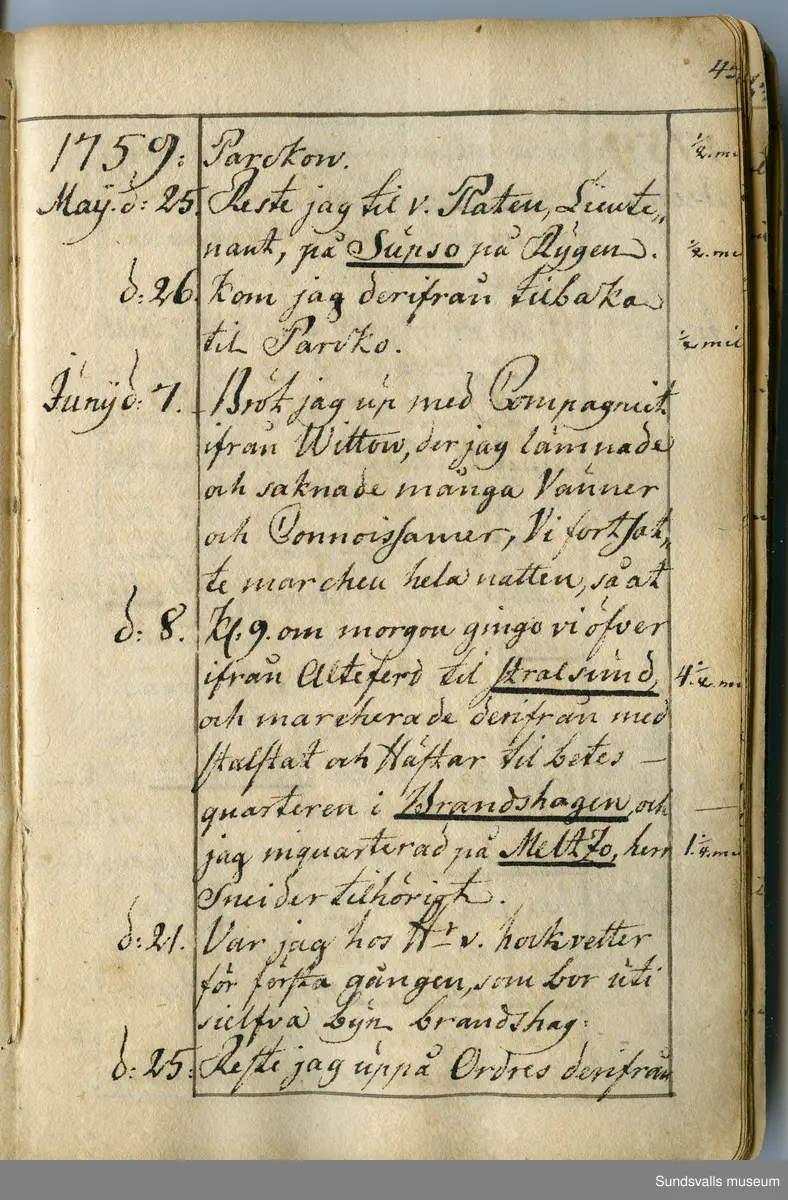 45
1759: Parckow. ½ mi
Maÿ. d: 25. Reste jag til v. Platen, Lieute„
nant, på Supso på Rÿgen. ½. mi
d: 26. Kom jag derifrån tilbaka
til Parcko. ½ mil
Junÿ d: 7. Bröt jag up med Compagniet
ifrån Wittow, der jag lämnade
och saknade många Vänner
och Connoissancer, Vi fortsat„
te marchen hela natten, så at
d: 8. Kl. 9. om morgon gingo vi öfver
ifrån Alteferd til Stralsund, 4½ mi
och marcherade derifrån med
Stalstat och Hästar til betes –
quarteren i Brandshagen, och —
jag inquarterad på Meltzo, herr 1.¼. mi
Sneider tilhörigt.
d: 21. Var jag hos Hr v. hockvetter
för första gången, som bor uti
sielfva bÿn brandshag:
d: 25: Reste jag uppå Ordres derifrån
Sundsvalls museum